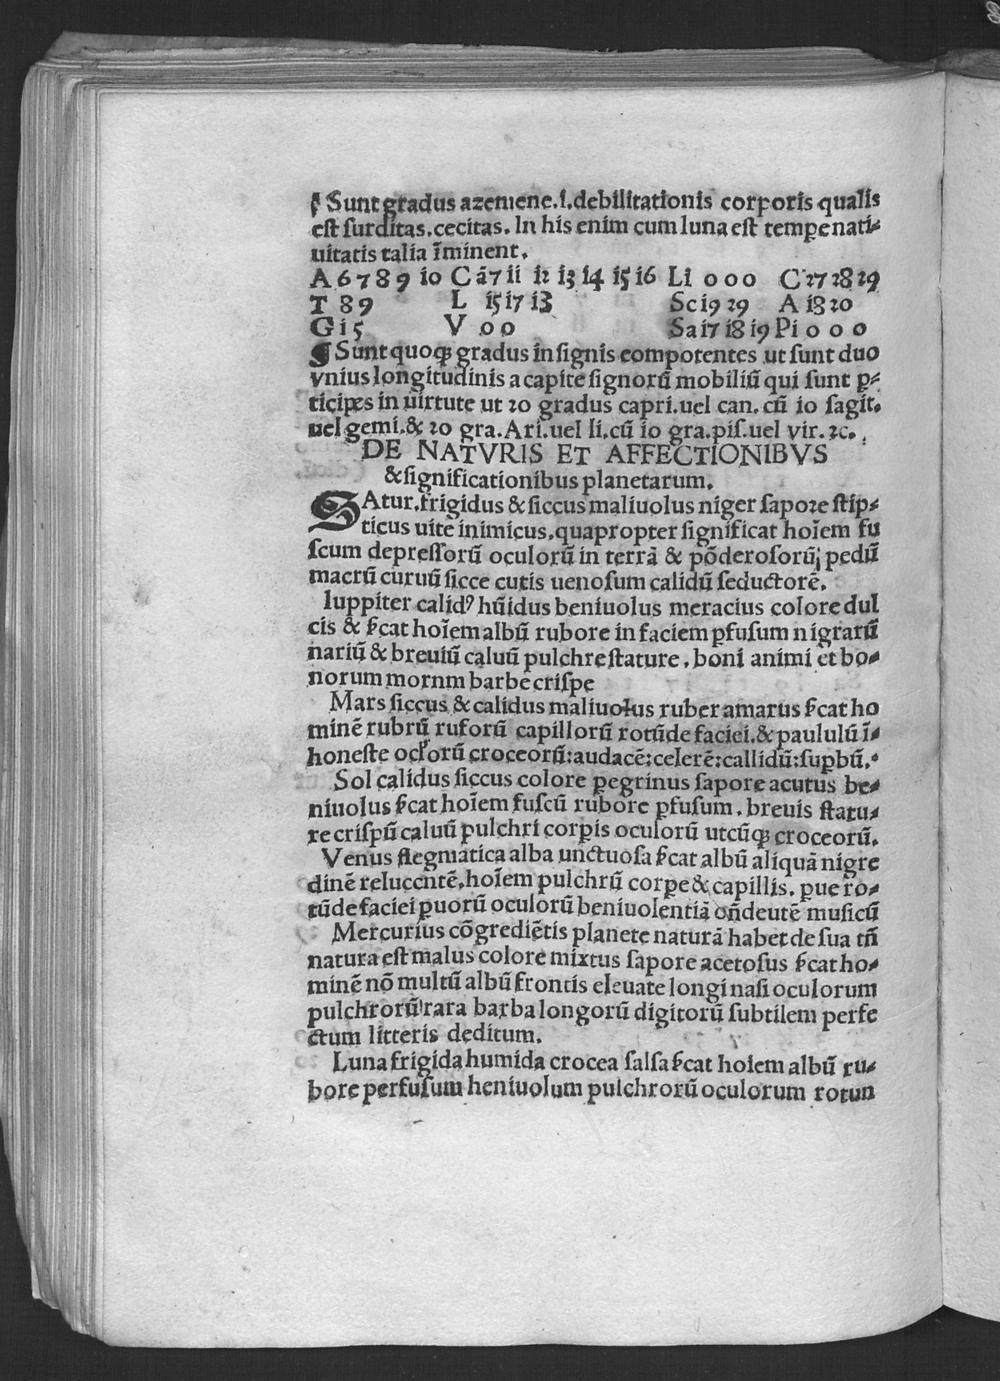 ¶ Sunt gradus azemene.i.debilitationis corporis qualis
est surditas.cecitas. In his enim cum luna est tempe natiꝛ
uitatis talia īminent.
A 6 7 8 9 10 C ā 7 11 12 13 14 15 16 Li 0 0 0 C 27 28 29
T 8 9 L 15 17 13 Sc 19 29 A 18 20
G 15 V 0 0 Sa 17 18 19 Pi 0 0 0
¶ Sunt quoqꝫ gradus in signis compotentes ut sunt duo
vnius longitudinis a capite signorū mobiliū qui sunt ꝑ-
ticipes in uirtute ut 20 gradus capri.uel can. cū 10 sagit.
uel gemi.& 20 gra.Ari.uel li.cū 10 gra.pis.uel vir.ꝛc.
DE NATVRIS ET AFFECTIONIBVS
& significationibus planetarum.
SAtur.frigidus & siccus maliuolus niger sapore stip-
ticus uite inimicus.quapropter significat hoīem fu
scum depressorū oculorū in terrā & pōderosorū pedū
macrū curuū sicce cutis uenosum calidū seductorē.
Iuppiter calidꝰ hūidus beniuolus meracius colore dul
cis & ſ̄cat hoīem albū rubore in faciem ꝑfusum nigrarū
nariū & breuiū caluū pulchre stature. boni animi et bo-
norum mornm barbe crispe
Mars siccus & calidus maliuolus ruber amarus ſ̄cat ho
minē rubrū ruforū capillorū rotūde faciei.& paululū ī-
honeste oclorū croceorū:audacē:celerē:callidū:suꝑbū.
Sol calidus siccus colore ꝑegrinus sapore acutus be-
niuolus ſ̄cat hoīem fuscū rubore ꝑfusum. breuis statu-
re crispū caluū pulchri corꝑis oculorū utcūqꝫ croceorū.
Venus flegmatica alba unctuosa ſ̄cat albū aliquā nigre
dinē relucentē.hoīem pulchrū corꝑe & capillis. ꝑue ro-
tūde faciei ꝑuorū oculorū beniuolentiā on̄deutē musicū
Mercurius cōgrediētis planete naturā habet de sua tn̄
natura est malus colore mixtus sapore acetosus ſ̄cat ho-
minē nō multū albū frontis eleuate longi nasi oculorum
pulchrorū rara barba longorū digitorū subtilem perfe
ctum litteris deditum.
Luna frigida humida crocea salsa ſ̄cat hoiem albū ru-
bore perfusum heniuolum pulchrorū oculorum rotun